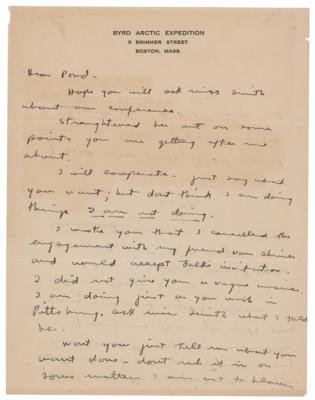 BYRD ARCTIC EXPEDITION
9 BRIMMER STREET
BOSTON, MASS.
Dear Pond-
Hope you will ask miss Smith
about our conference.
Straightened her out on some
points you are getting after me
about.
I will cooperate - just say what
you want, but dont think I am doing
things I am not doing.
I wrote you that I cancelled the
engagement with my friend van
and would accept Falks invitation.
I did not give you a vague answer.
I am doing just as you wish in
Pittsburg. ask miss Smith what I told
her.
wont you just tell me what you
want done - dont rub it in on
some matters I am not to blame